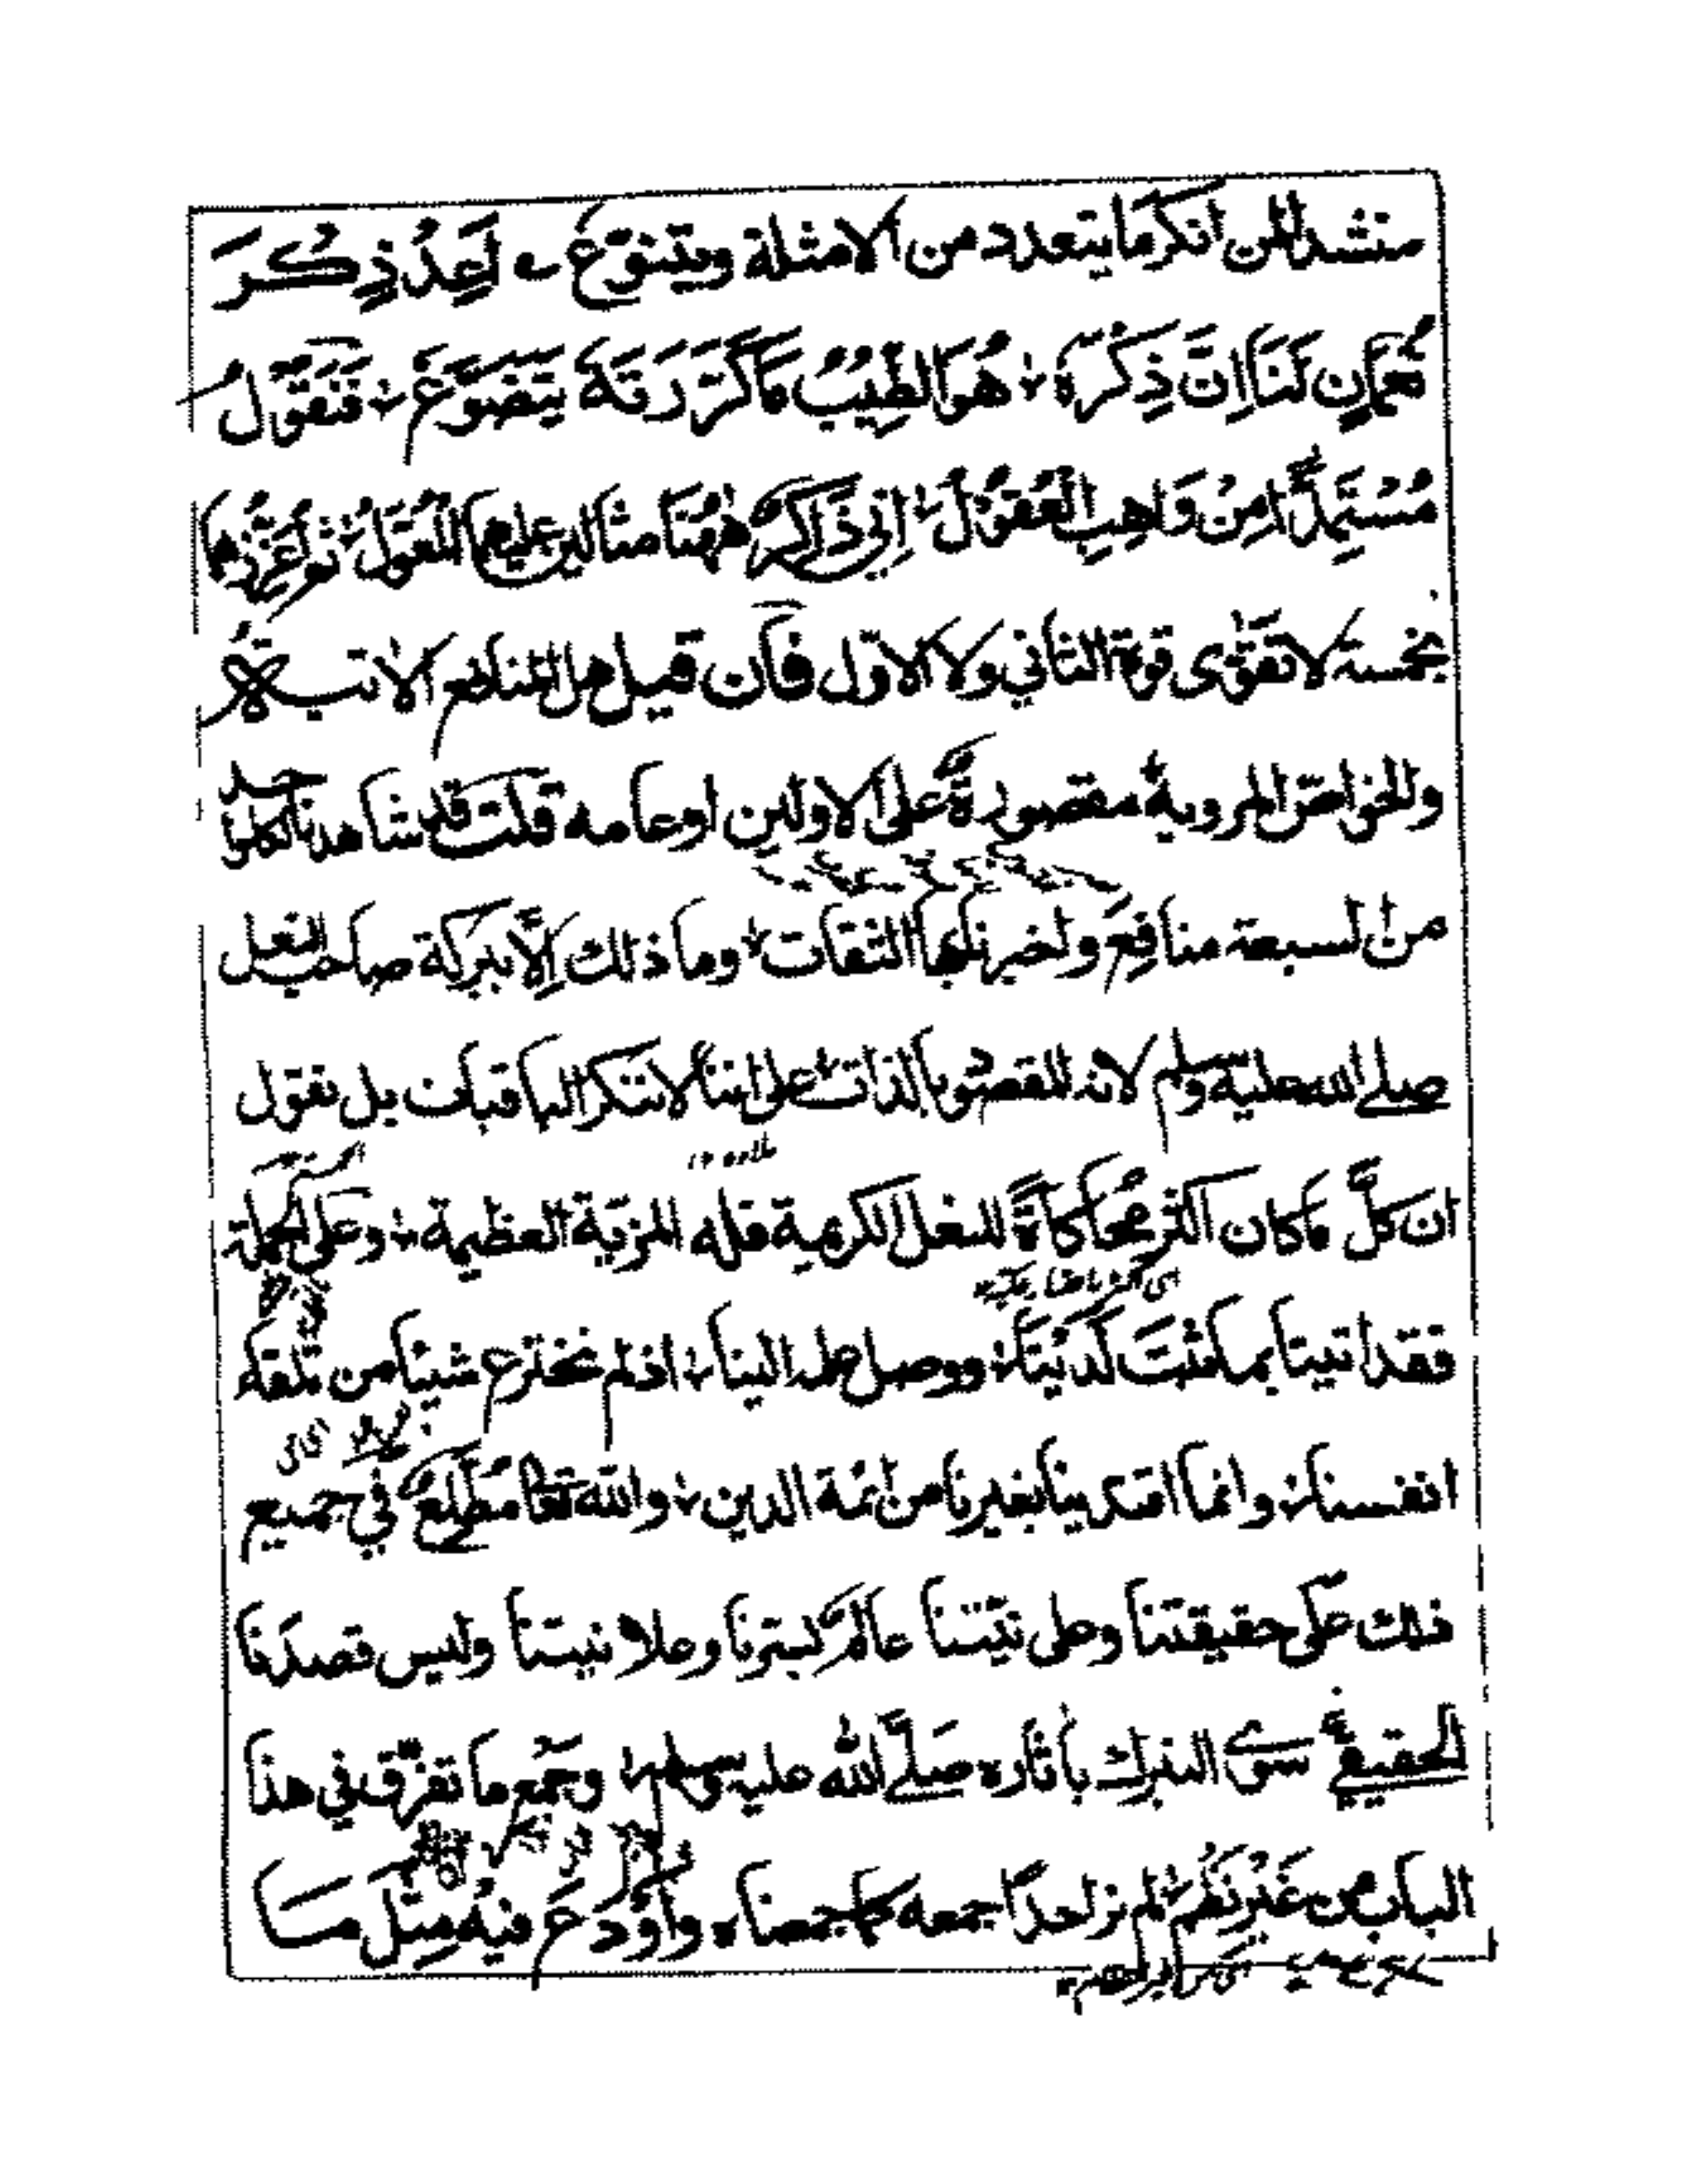 منشدا لمن انكر ما يتعدد من الامثلة ويتنوع أَعِدْ ذِكْرَ
نُعْمَانٍ لَنَا اِنَّ ذِكْرَهُ هُوَ الطِيْبُ مَا كَرَّرْتَهُ يَتَضَوَّعُ فَنَقُوْلُ
مُسْتَمِدًّا مِنْ وَاهِبِ الْعُقُوْلْ اِنِّي ذَاكِرٌ هٰهُنَا مثالين عليهما المُعَوَّلُ ثم اُعَزِّزُهما
بخمسة لا تقوٰى قوة الثاني ولا الاوّل فان قيل هل المنافع الاتيۃ
والخواصّ المروية مقصورةٌ على الاولين او عامه قلت قد شاهدنا لكلٍّ
من السبعة منافِعَ واخبرنا بها الثقات وما ذلك اِلَّا ببركة صاحب النعل
صلى الله عليه وسلم لانه المقصود بالذات على اننا لا ننكر الباقيات بل نقول
ان كلَّ ما كان اكثر مُحاكاةً للنعل الكريمة فله المزيّة العظيمة وعلى الجملة
فقد اتينا بما ثَبَتَ لَدَيْنَا ووصل علمه الينا اذ لم نخترع شيئا من تلقاء
انفسنا وانما اقتدينا بغيرنا من ائمة الدين والله تعالى مُطَّلِعٌ في جميع
ذلك على حقيقتنا وعلى نيّتنا عالمٌ بسرنا وعلانيتنا وليس قصدنا
الحقيقي سوى التبرك بآثاره صلَّى الله عليه وسلم وجمع ما تفرّق في هذا
الباب من غَيْرِ نَظْمٍ لم نر احدًا جمعه كما جمعناه واَوْدَعَ فيه مِثْلَ مَا